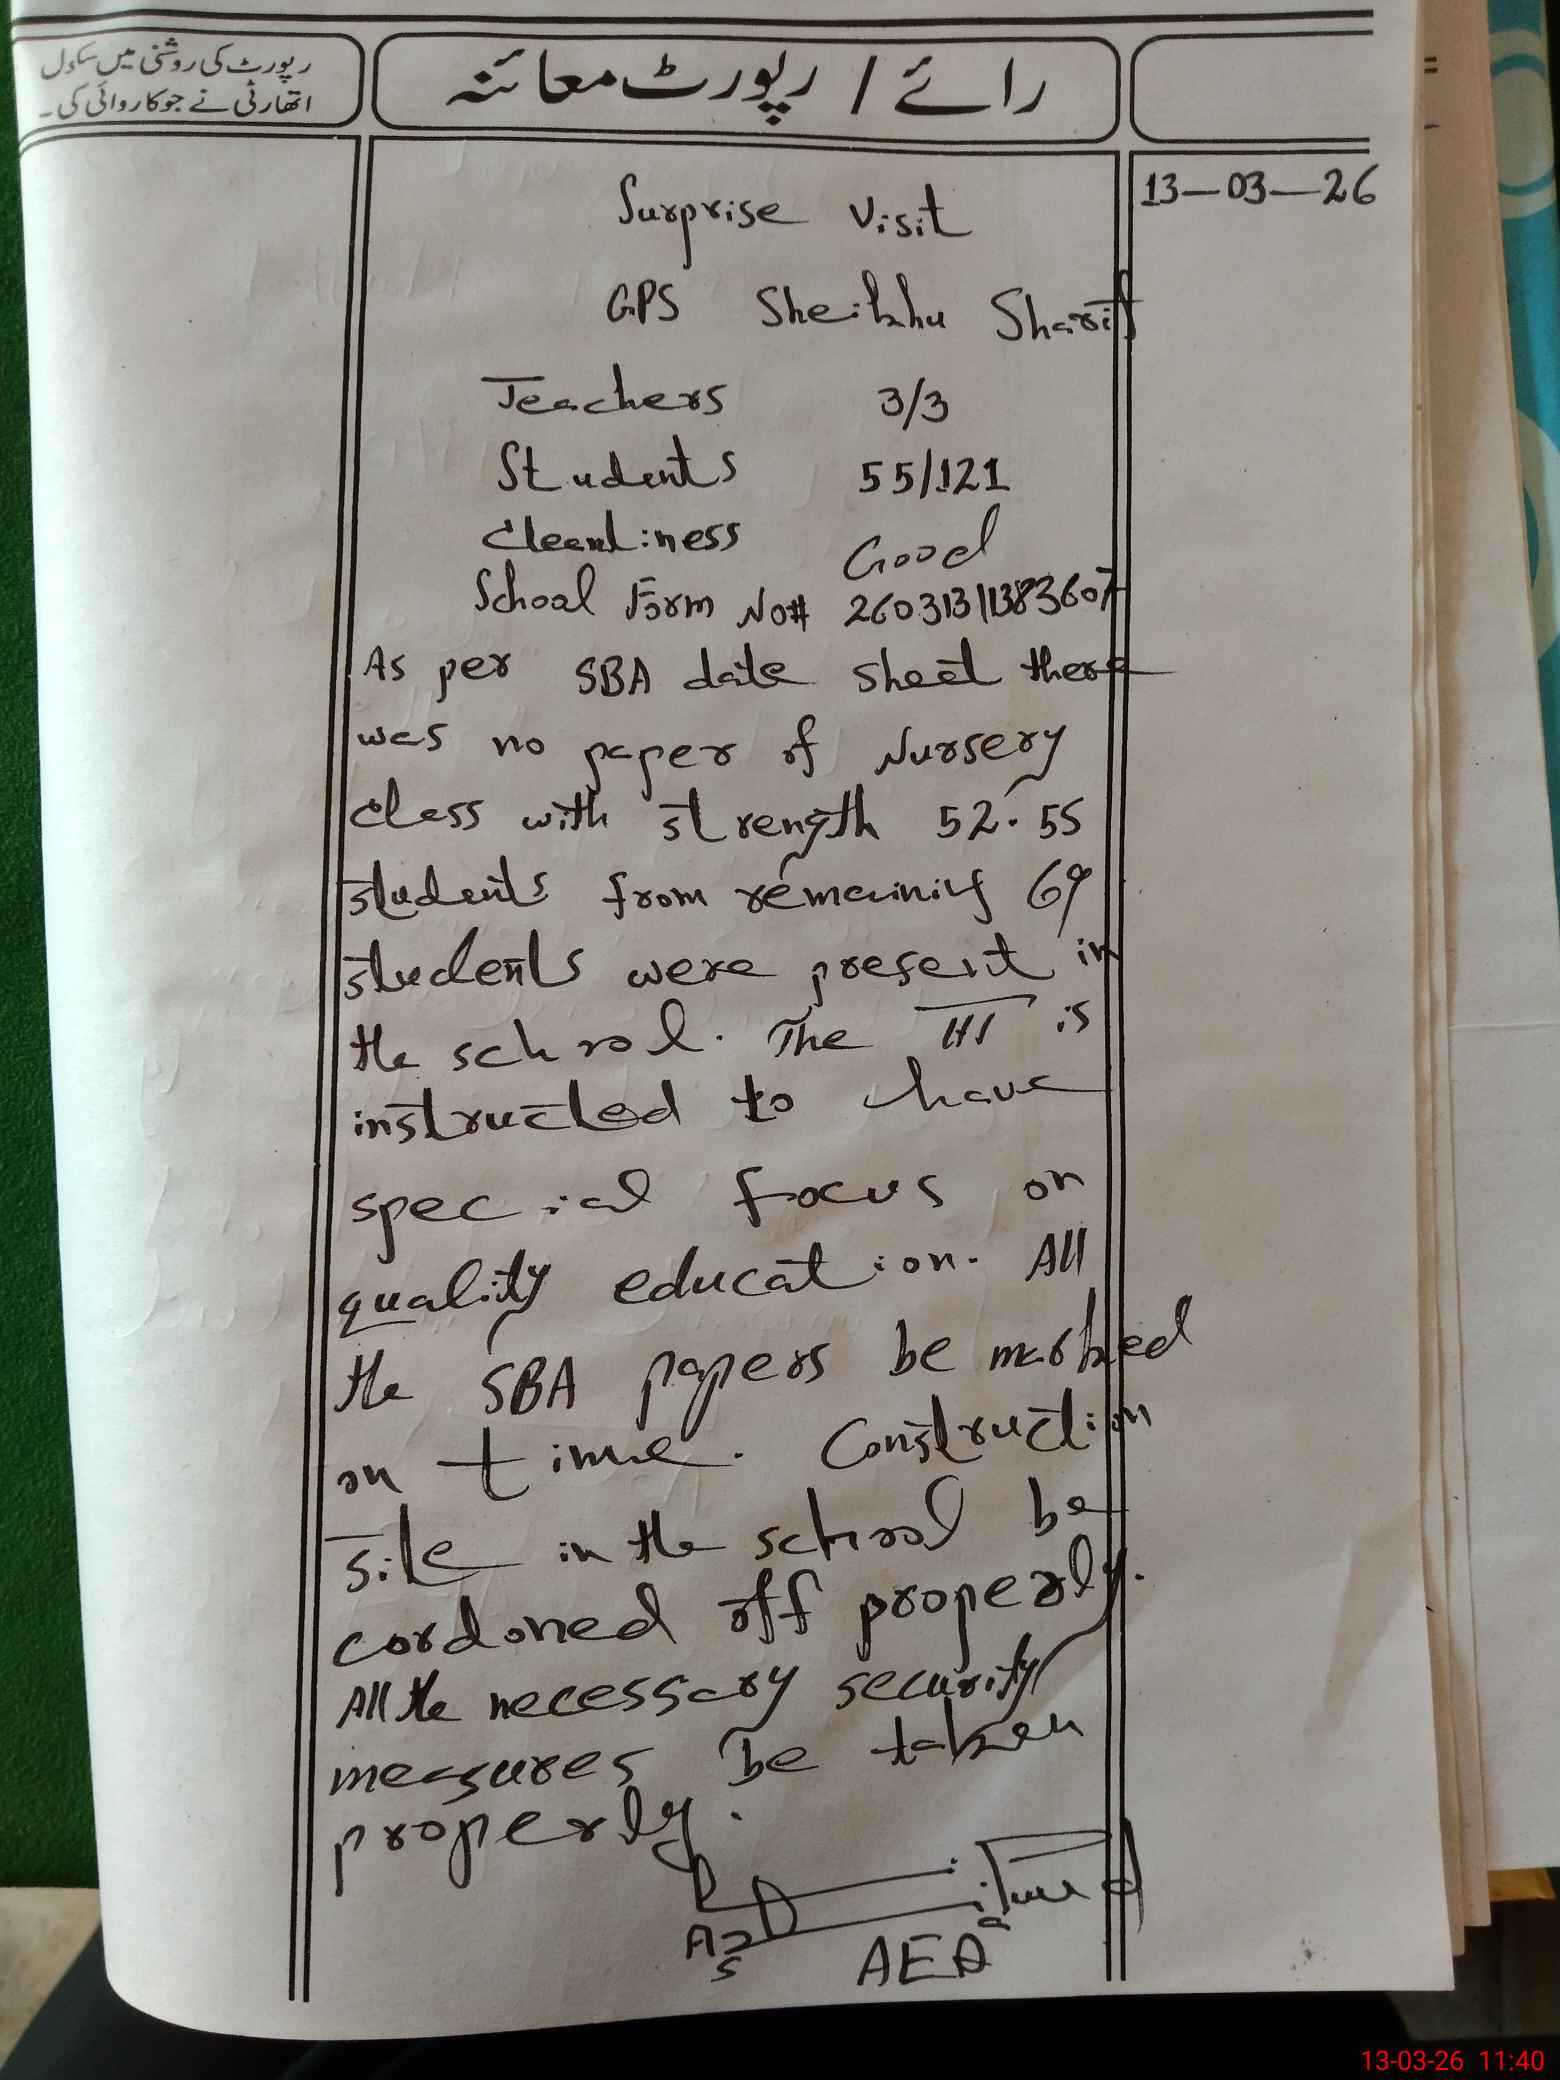 رپورٹ کی روشنی میں سکول
اتھارٹی نے جو کاروائی کی۔
رائے / رپورٹ معائنہ
13-03-26
Surprise Visit
GPS Sheikhu Sharif
Teachers 3/3
Students 55/121
Cleanliness Good
School Form No# 26031311383607
As per SBA date sheet there
was no paper of Nursery
class with strength 52. 55
students from remaining 69
students were present in
the school. The HT is
instructed to have
special focus on
quality education. All
the SBA papers be marked
on time. Construction
site in the school be
cordoned off properly.
All the necessary security
measures be taken
properly.
AEO
13-03-26 11:40